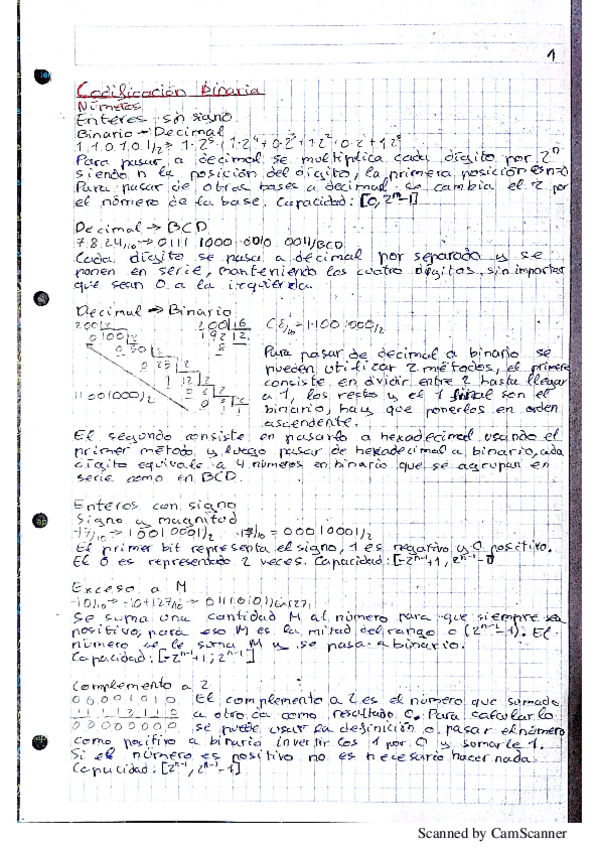 1
Codificación Binaria
Números
Enteros sin signo
Binario → Decimal
Para pasar a decimal se multiplica cada dígito por 2ⁿ
siendo n la posición del dígito, la primera posición es n=0
Para pasar de otras bases a decimal se cambia el 2 por
el número de la base. Capacidad: [0, 2ⁿ-1]
Decimal → BCD
7824/₁₀ → 0111 1000 0010 0011/BCD
Cada dígito se pasa a decimal por separado y se
ponen en serie, manteniendo los cuatro dígitos, sin importar
que sean 0 a la izquierda.
Decimal → Binario
200 | 2
200 | 16
192 12
8
C8/₁₆ = 11001000/₂
11001000/₂
Para pasar de decimal a binario se
pueden utilizar 2 métodos, el primero
consiste en dividir entre 2 hasta llegar
a 1, los resto y el 1 final son el
binario, hay que ponerlos en orden
ascendente.
El segundo consiste en pasarlo a hexadecimal usando el
primer método y luego pasar de hexadecimal a binario, cada
dígito equivale a 4 números en binario que se agrupan en
serie como en BCD.
Enteros con signo
Signo y magnitud
-17/₁₀ → 10010001/₂ 17/₁₀ = 00010001/₂
El primer bit representa el signo, 1 es negativo y 0 positivo.
El 0 es representado 2 veces. Capacidad: [-2ⁿ⁻¹+1, 2ⁿ⁻¹-1]
Exceso a M
Se suma una cantidad M al número para que siempre sea
positivo, para eso M es la mitad del rango o (2ⁿ⁻¹-1). El
número se le suma M y se pasa a binario.
Capacidad: [-2ⁿ⁻¹+1; 2ⁿ⁻¹]
Complemento a 2
El complemento a 2 es el número que sumado
a otro da como resultado 0. Para calcularlo
00000000 se puede usar la definición o pasar el número
como positivo a binario invertir los 1 por 0 y sumarle 1.
Si el número es positivo no es necesario hacer nada.
Capacidad: [2ⁿ⁻¹, 2ⁿ⁻¹-1]
Scanned by CamScanner